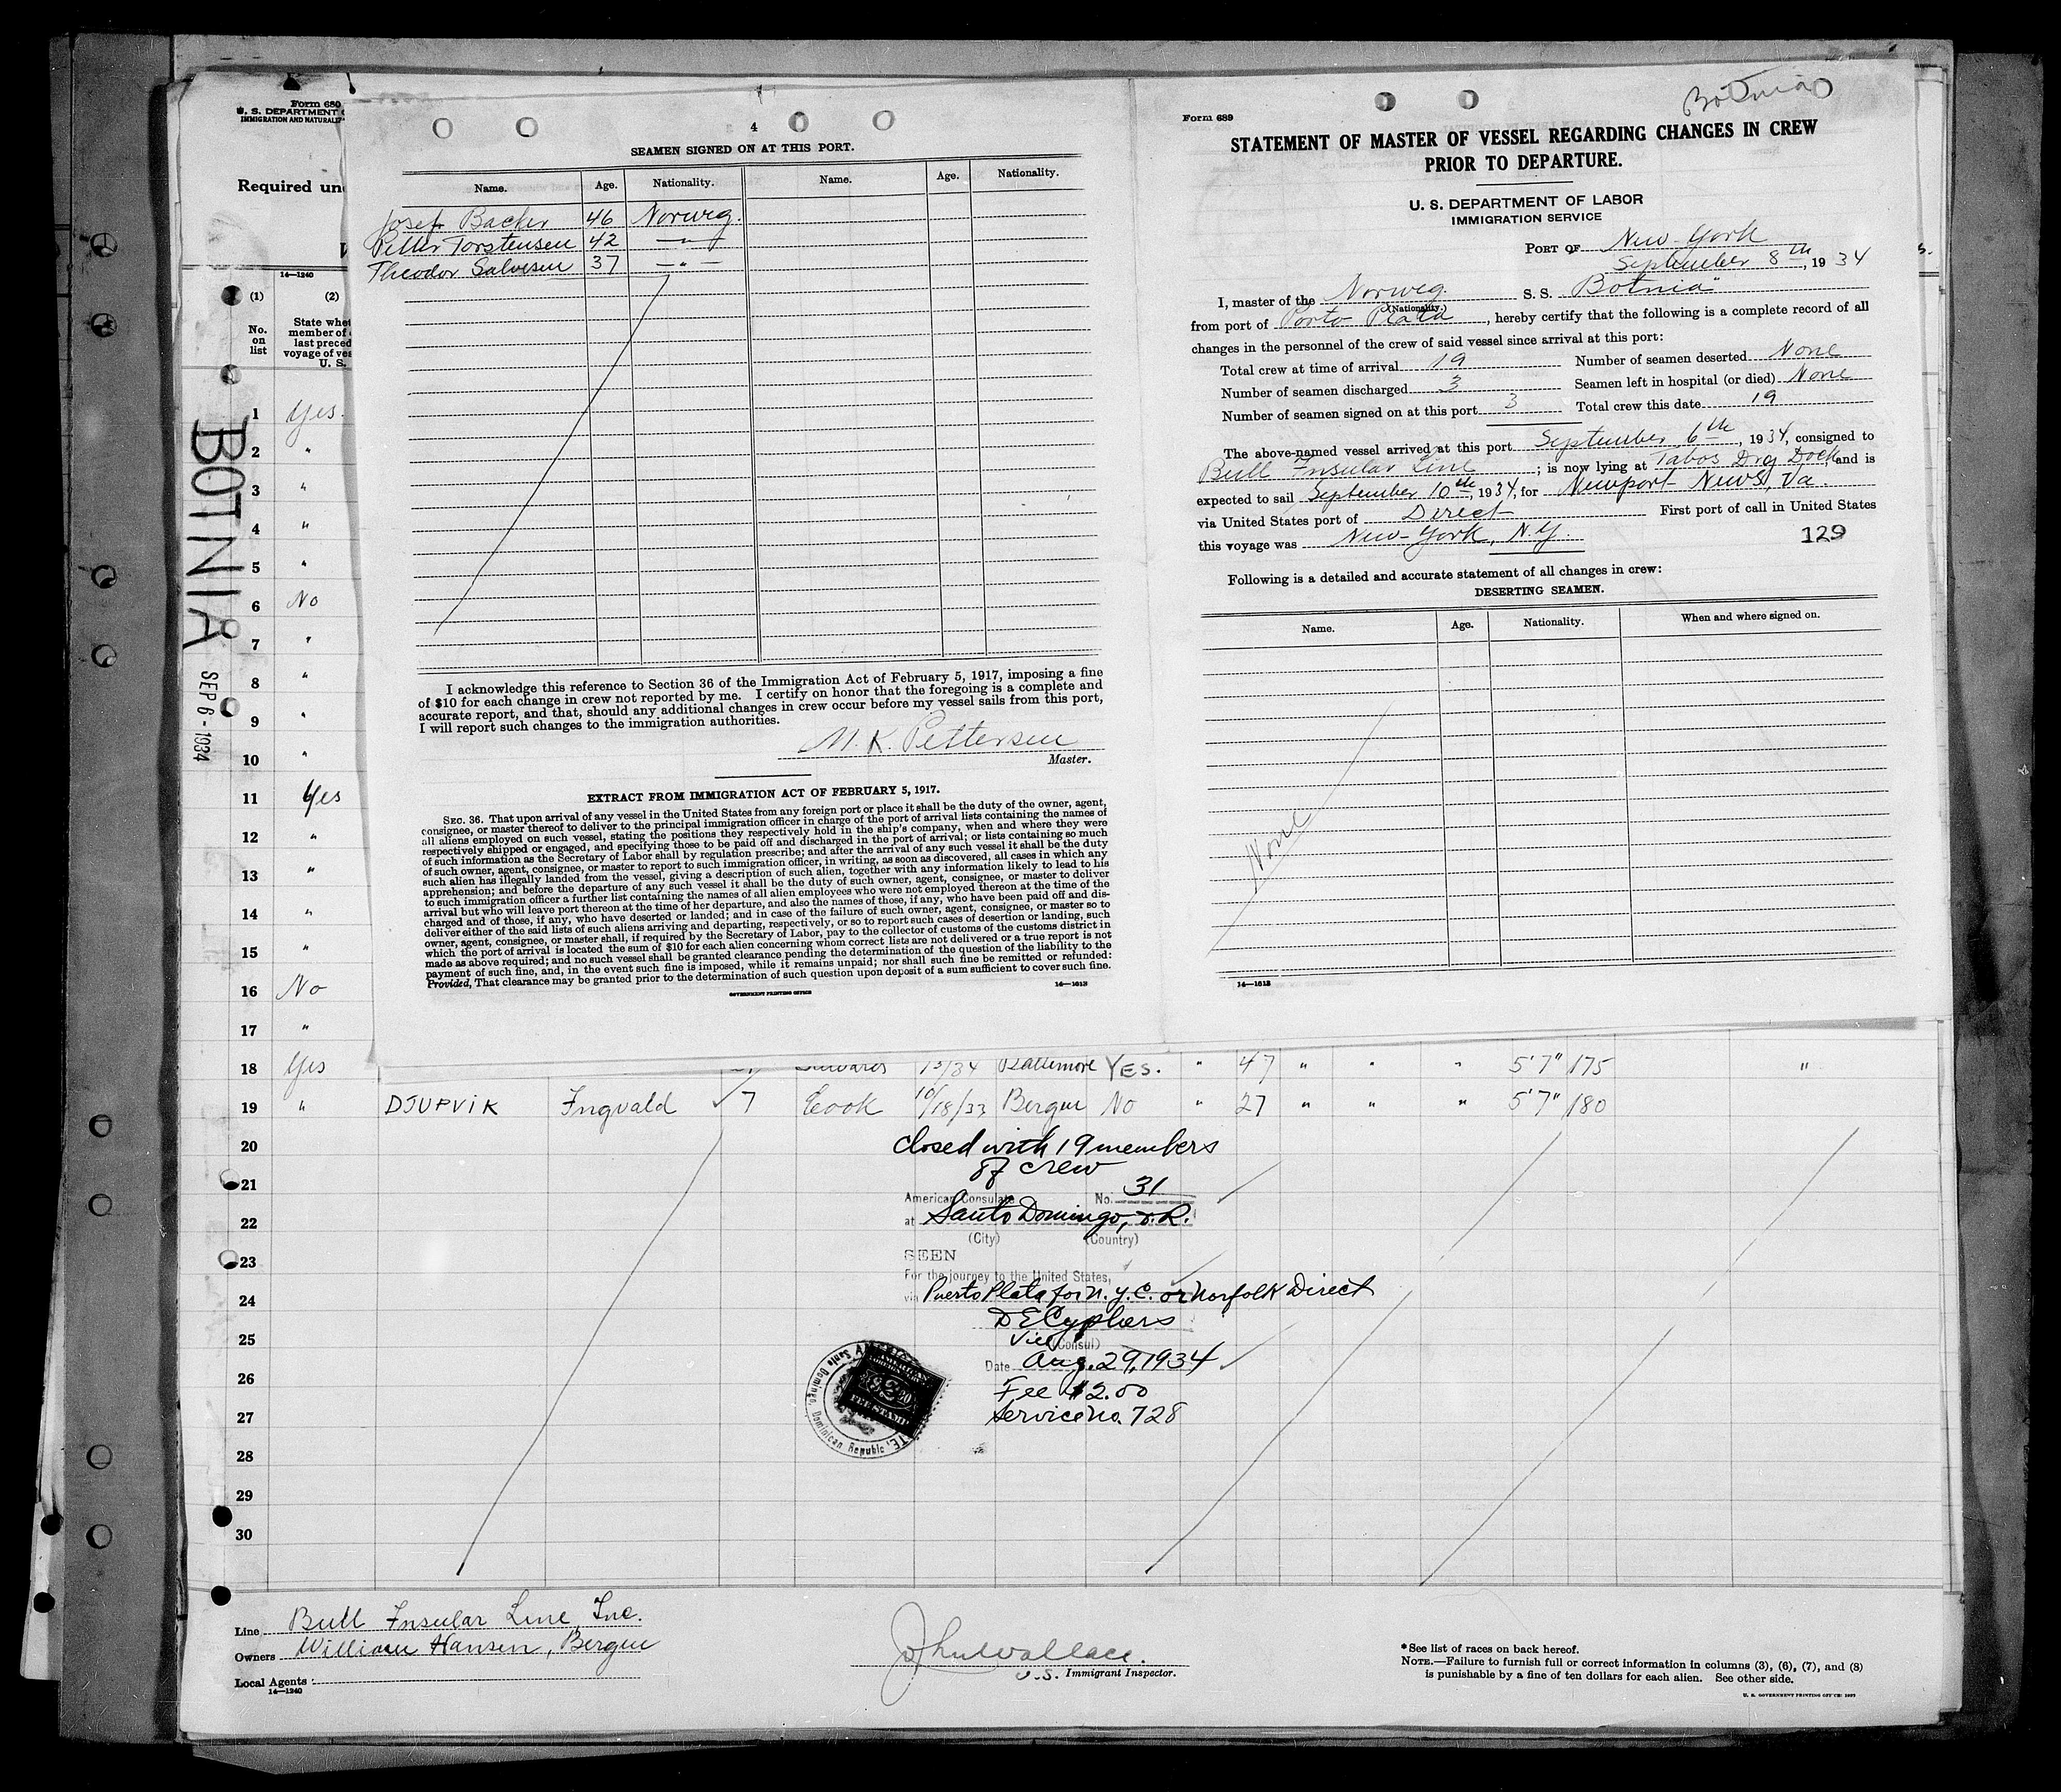 Form 680
U. S. DEPARTMENT
IMMIGRATION AND NATURALIZ
Required un
14—1240
(1) (2)
No. on list
State whet
member of
last preced
voyage of ves
U. S.
BOTNIA
SEP 6 - 1934
1 Yes.
2 "
3 "
4 "
5 "
6 No
7 "
8 "
9 "
10 "
11 Yes
12 "
13 "
14 "
15 "
16 No
17 "
4
SEAMEN SIGNED ON AT THIS PORT.
Name. Age. Nationality. Name. Age. Nationality.
Josef Backer 46 Norweg.
Petter Torstensen 42 —"—
Theodor Salvesen 37 —"—
I acknowledge this reference to Section 36 of the Immigration Act of February 5, 1917, imposing a fine
of $10 for each change in crew not reported by me. I certify on honor that the foregoing is a complete and
accurate report, and that, should any additional changes in crew occur before my vessel sails from this port,
I will report such changes to the immigration authorities.
M. K. Pettersen
Master.
EXTRACT FROM IMMIGRATION ACT OF FEBRUARY 5, 1917.
SEC. 36. That upon arrival of any vessel in the United States from any foreign port or place it shall be the duty of the owner, agent,
consignee, or master thereof to deliver to the principal immigration officer in charge of the port of arrival lists containing the names of
all aliens employed on such vessel, stating the positions they respectively hold in the ship's company, when and where they were
respectively shipped or engaged, and specifying those to be paid off and discharged in the port of arrival; or lists containing so much
of such information as the Secretary of Labor shall by regulation prescribe; and after the arrival of any such vessel it shall be the duty
of such owner, agent, consignee, or master to report to such immigration officer, in writing, as soon as discovered, all cases in which any
such alien has illegally landed from the vessel, giving a description of such alien, together with any information likely to lead to his
apprehension; and before the departure of any such vessel it shall be the duty of such owner, agent, consignee, or master to deliver
to such immigration officer a further list containing the names of all alien employees who were not employed thereon at the time of the
arrival but who will leave port thereon at the time of her departure, and also the names of those, if any, who have been paid off and dis-
charged and of those, if any, who have deserted or landed; and in case of the failure of such owner, agent, consignee, or master so to
deliver either of the said lists of such aliens arriving and departing, respectively, or so to report such cases of desertion or landing, such
owner, agent, consignee, or master shall, if required by the Secretary of Labor, pay to the collector of customs of the customs district in
which the port of arrival is located the sum of $10 for each alien concerning whom correct lists are not delivered or a true report is not
made as above required; and no such vessel shall be granted clearance pending the determination of the question of the liability to the
payment of such fine, and, in the event such fine is imposed, while it remains unpaid; nor shall such fine be remitted or refunded:
Provided, That clearance may be granted prior to the determination of such question upon deposit of a sum sufficient to cover such fine.
GOVERNMENT PRINTING OFFICE 14—1613
Botnia
Form 689
STATEMENT OF MASTER OF VESSEL REGARDING CHANGES IN CREW
PRIOR TO DEPARTURE.
U. S. DEPARTMENT OF LABOR
IMMIGRATION SERVICE
PORT OF New-York
September 8th, 1934
I, master of the Norweg. S. S. Botnia
(Nationality.)
from port of Porto Plata, hereby certify that the following is a complete record of all
changes in the personnel of the crew of said vessel since arrival at this port:
Total crew at time of arrival 19 Number of seamen deserted None
Number of seamen discharged 3 Seamen left in hospital (or died) None
Number of seamen signed on at this port 3 Total crew this date 19
The above-named vessel arrived at this port September 6th, 1934, consigned to
Bull Insular Line; is now lying at Dry Dock, and is
expected to sail September 10th, 1934, for Newport News, Va.
via United States port of Direct First port of call in United States
this voyage was New-York, N.Y. 129
Following is a detailed and accurate statement of all changes in crew:
DESERTING SEAMEN.
Name. Age. Nationality. When and where signed on.
None
14—1613
18 Yes Baltimore YES. " 47 " " " 5'7" 175 "
19 " DJUPVIK Ingvald 7 Cook 10/18/33 Bergen No " 27 " " " 5'7" 180
20 closed with 19 members
of crew
21 American Consulate No. 31
22 at Santo Domingo, D.R.
(City) (Country)
23 SEEN
For the journey to the United States,
24 via Puerto Plata for N.Y.C. or Norfolk Direct
D E Cyphers
25 Vice (Consul)
Date Aug. 29, 1934
26 Fee $2.00
27 Service No. 728
Santo Domingo, Dominican Republic
FEE STAMP
28
29
30
Line Bull Insular Line, Inc.
Owners William Hansen, Bergen
Local Agents
14—1240
John Wallace.
U.S. Immigrant Inspector.
*See list of races on back hereof.
NOTE.—Failure to furnish full or correct information in columns (3), (6), (7), and (8)
is punishable by a fine of ten dollars for each alien. See other side.
U. S. GOVERNMENT PRINTING OFFICE: